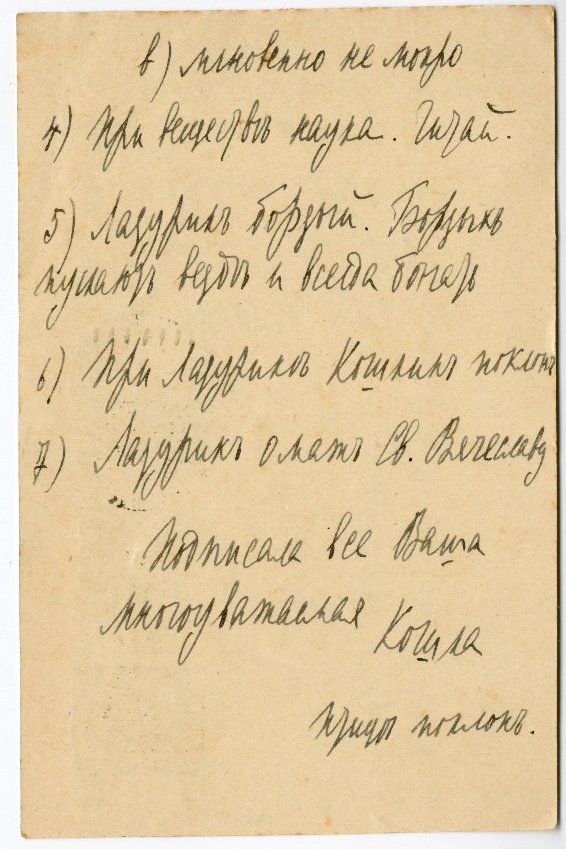 в) мгновенно не мокро
4) При веществѣ наука. Читай.
5) Лазурикъ бордый. Бордыхъ
пускаютъ вездѣ и всегда
6) При Лазурикѣ Кошкинъ поклонъ
7) Лазурикъ Св. Вячеславу
Подписала все Ваша
многоуважаемая
Кошка
поклонъ.